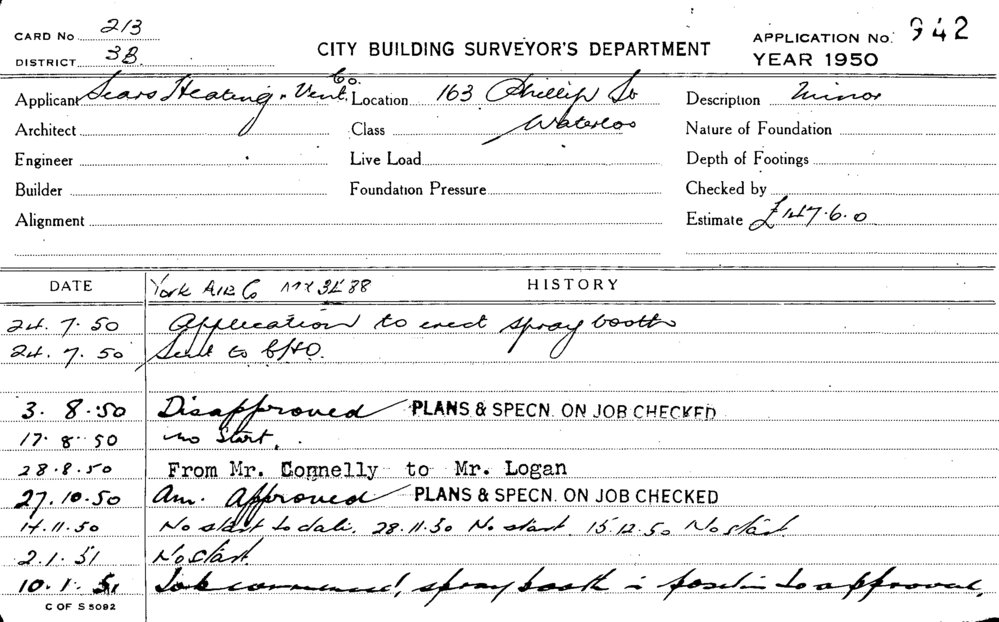 CARD No 213
DISTRICT 3B
CITY BUILDING SURVEYOR'S DEPARTMENT
APPLICATION No. 942
YEAR 1950
Applicant Sears Heating & Vent. Co. Location 163 Phillip St Description Minor
Architect Class Waterloo Nature of Foundation
Engineer Live Load Depth of Footings
Builder Foundation Pressure Checked by
Alignment Estimate £147.6.0
DATE York Air Co MX 3488 HISTORY
24.7.50 Application to erect spray booth
24.7.50 Sent to CHO.
3.8.50 Disapproved PLANS & SPECN. ON JOB CHECKED
17.8.50 no start.
28.8.50 From Mr. Connelly to Mr. Logan
27.10.50 Am. Approved PLANS & SPECN. ON JOB CHECKED
14.11.50 No start to date. 28.11.50 No start. 15.12.50 No start.
2.1.51 No start.
10.1.51 Job commenced, spray booth in position to approval.
C OF S 5092